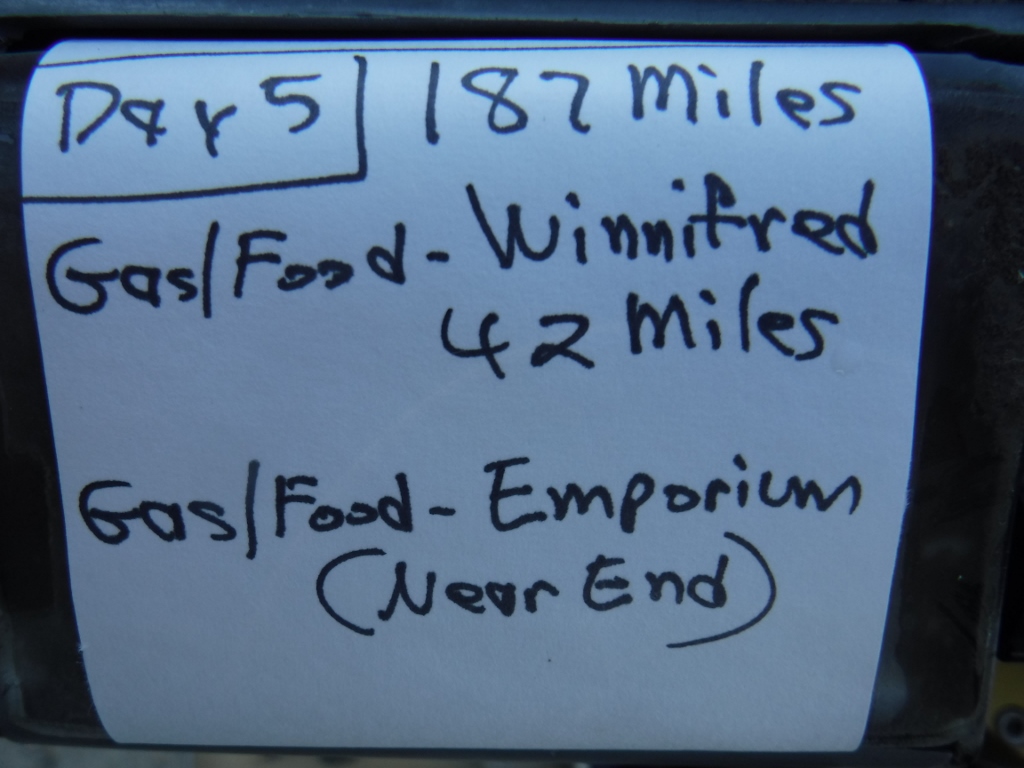 Day 5 187 Miles
Gas/Food - Winnifred
42 Miles
Gas/Food - Emporium
(Near End)